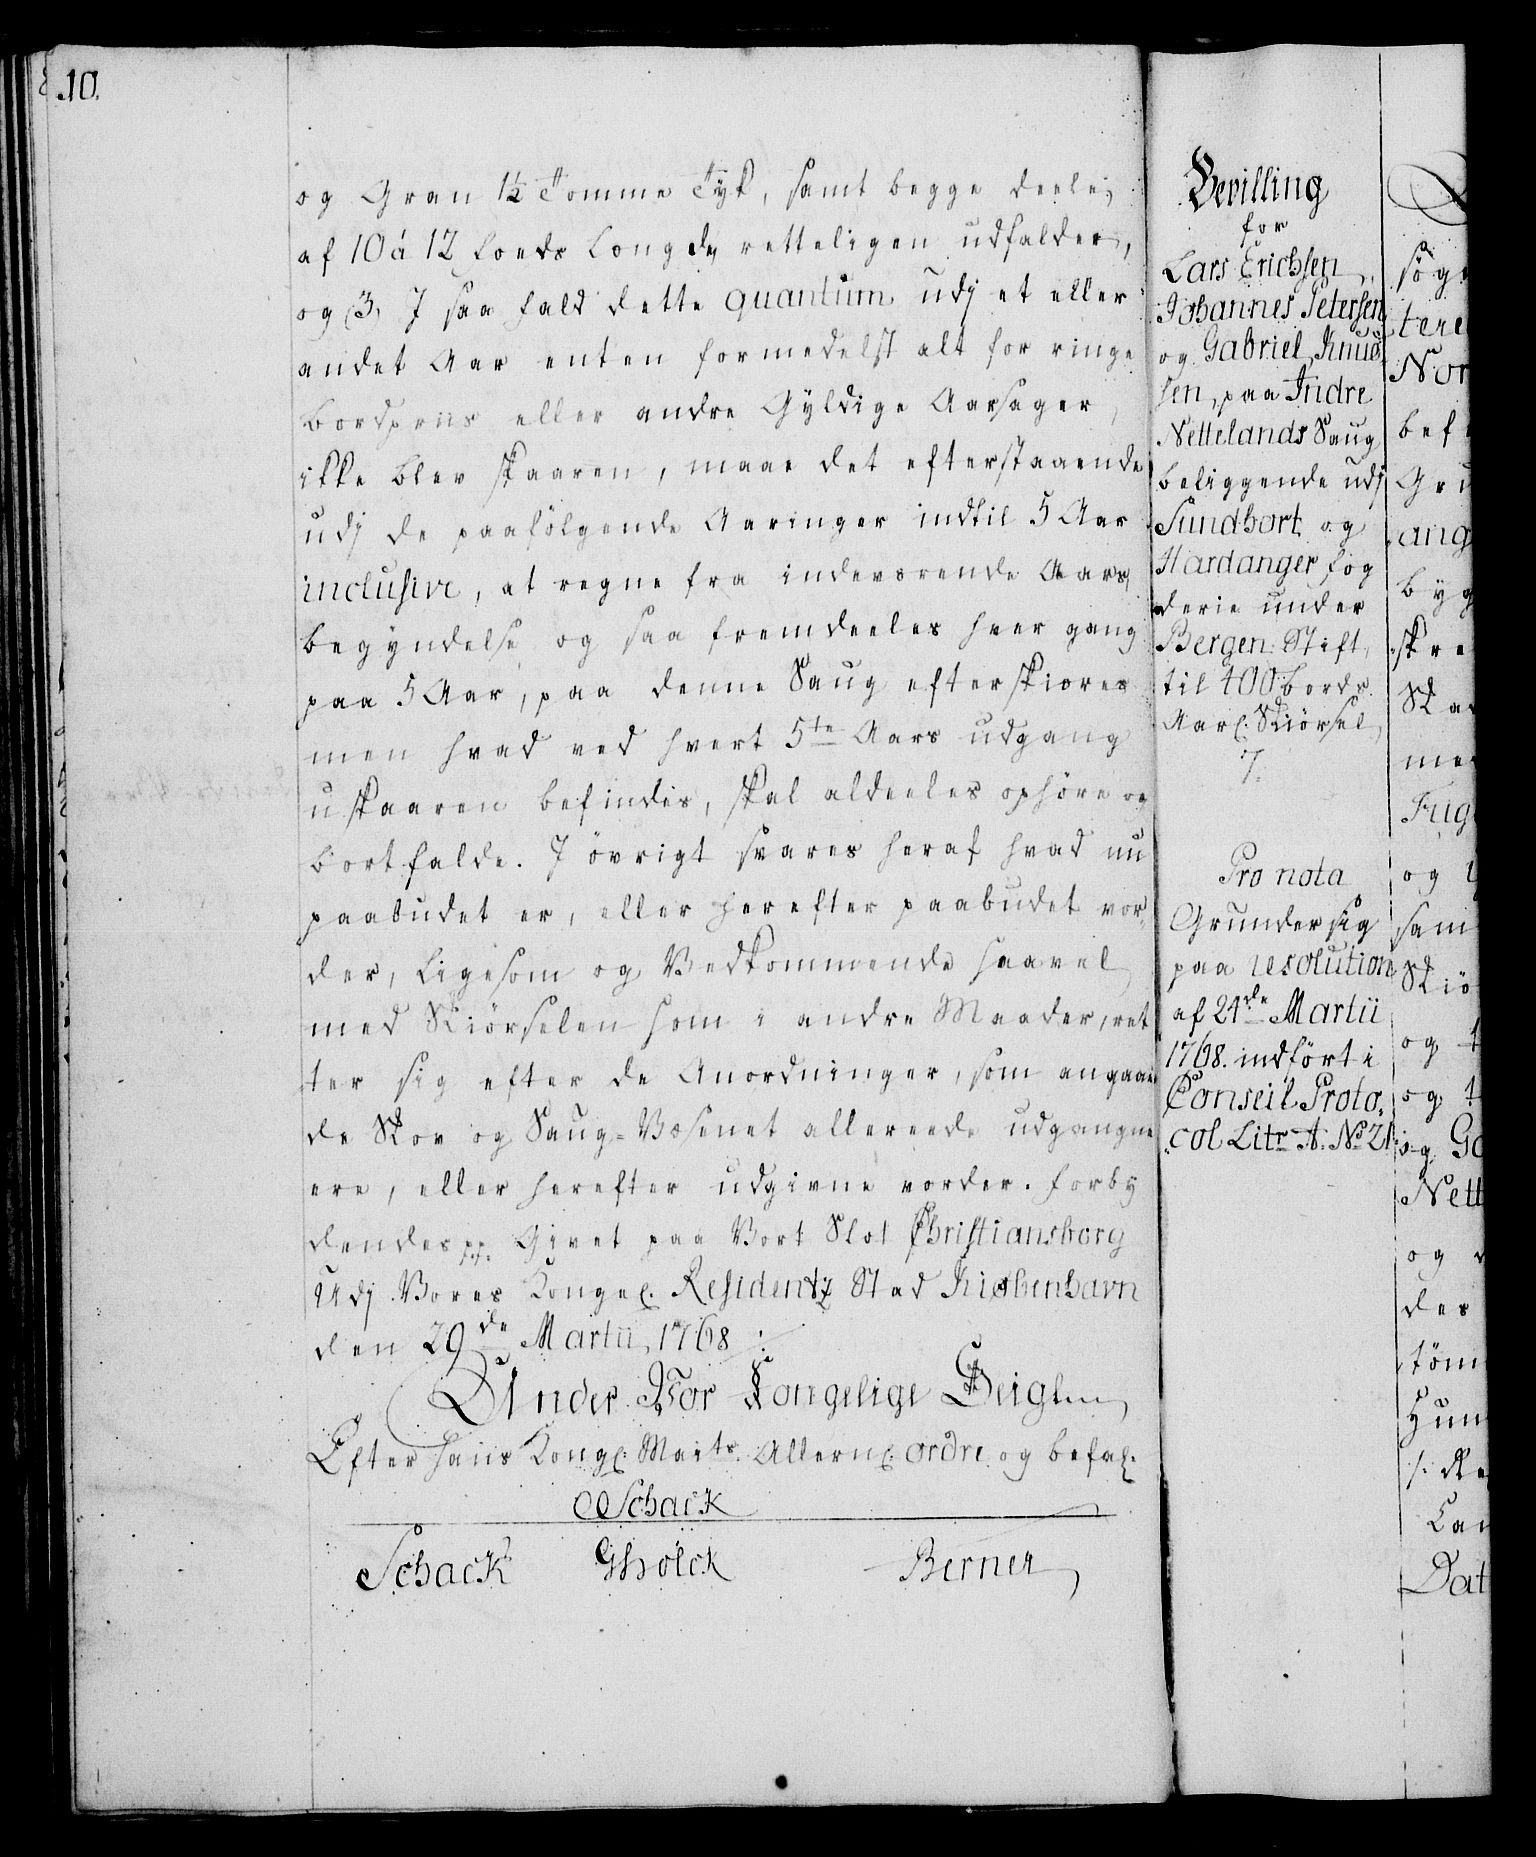 10.
og Gran 1½ Tomme Tyk, samt begge deele,
af 10 á 12 foeds Longde retteligen udfalder,
og (3, I saa fald dette quantum udj et eller
andet Aar enten formedelst alt for ringe
bordpriis eller andre Gyldige Aarsager,
ikke blev skaaren, maae det efterstaaende
udj de paafölgende Aaringer indtil 5 Aar
inclusive, at regne fra indeværende Aars
begyndelse og saa fremdeeles hver gang
paa 5 Aar, paa denne Saug efterskiæres
men hvad ved hvert 5te Aars udgang
uskaaren befindes, skal aldeeles ophöre og
bortfalde. I övrigt svares heraf hvad nu
paabudet er, eller herefter paabudet vor,,
der, ligesom og Vedkommende saavel
med Skiörselen som i andre Maader, ret
ter sig efter de Anordninger, som angaaen
de Skov og Saug-Væsenet allereede udgangne
ere, eller herefter udgivne vorder. forby
dendes pp. Givet paa Vort Slot Christiansborg
Udj Vores Kongel. Residentz Stad Kiøbenhavn
den 29de Martii 1768 ./.
Under Vor Kongelige Seigl
Efter hans Kongl. Maits. Allern. ordre og befal.
Schack
Schack GHolck Berner
Bevilling
for
Lars Erichsen,
Johannes Petersen
og Gabriel Knud
sen, paa Indre
Nettelands Saug
beliggende udj
Sundhort og
Hardanger fog
derie under
Bergen: Stift,
til 400 bords
Aarl. Skiörsel
7.
Pro nota
Grunder sig
paa resolution
af 24de Martii
1768. indfört i
Conseil Proto,,
col Litr A: No 21.
söge
tere
Nor
bef
Gru
ang
byg
skre
Ska
me
Tug
og
sam
Skiö
og t
og t
og Ga
Nett
og
des
töm
Hun
/: Re
Can
Dat